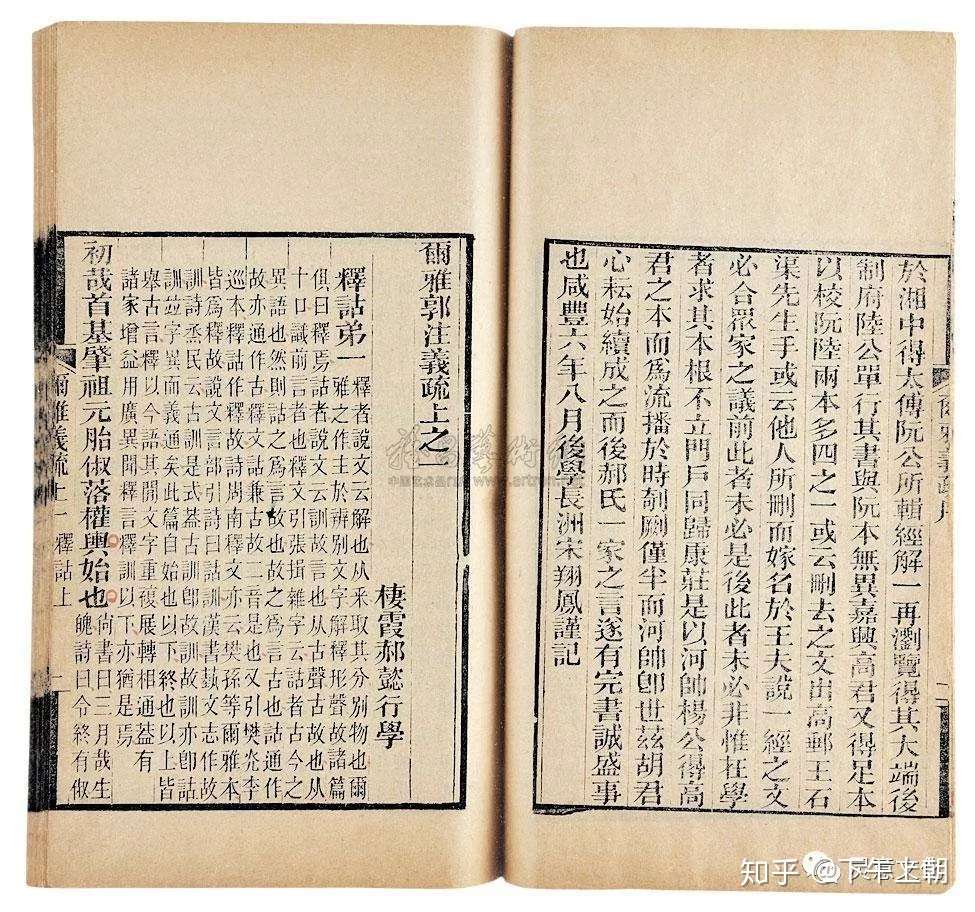 於湘中得太傅阮公所輯經解一再瀏覽得其大端後
制府陸公單行其書與阮本無異嘉興高君又得足本
以校阮陸兩本多四之一或云刪去之文出高郵王石
渠先生手或云他人所刪而嫁名於王夫說一經之文
必合眾家之議前此者未必是後此者未必非惟在學
者求其本根不立門戶同歸康莊是以河帥楊公得高
君之本而爲流播於時剞劂僅半而河帥卽世茲胡君
心耘始續成之而後郝氏一家之言遂有完書誠盛事
也咸豐六年八月後學長洲宋翔鳳謹記
爾雅義疏序
一
爾雅郭注義疏上之一
棲霞郝懿行學
釋詁弟一
釋者說文云解也从釆取其分別物也爾
雅之作主於辨別文字解釋形聲故諸篇
俱曰釋焉詁者說文云訓故言也从古聲古故也从
十口識前言者也釋文引張揖雜字云詁者古今之
異語也然則詁之爲言故也詁之爲言古也詁通作
故亦通作古釋文詁兼古故二音是也又引樊光李
巡本釋詁作釋故詩周南釋文亦云樊孫等爾雅本
皆爲釋故說文言部引詩曰詁訓漢書蓺文志作故
訓詩烝民云古訓是式葢古訓卽故訓故訓亦卽詁
訓竝字異而義通矣此篇自始也以下終也以上皆
舉古言釋以今語其閒文字重複展轉相通葢有
諸家增益用廣異聞釋言釋訓以下亦猶是焉
初哉首基肇祖元胎俶落權輿始也
尙書曰三月哉生
魄詩曰令終有俶
爾雅義疏上一 釋詁上
一
知乎